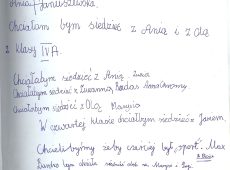 Ania Januszewska
Chciałam bym siedzieć z Anią i z Olą
z klasy IV A
Chciałabym siedzieć z Anią. Zuzia
Chciałabym siedzieć z Zuzanną Anna
Chciałabym siedzieć z Olą Marysia
W czwartej klasie chciałbym siedzieć z
Chcielibyśmy żeby częściej był „sport”. Max
bym chciała siedzieć obok